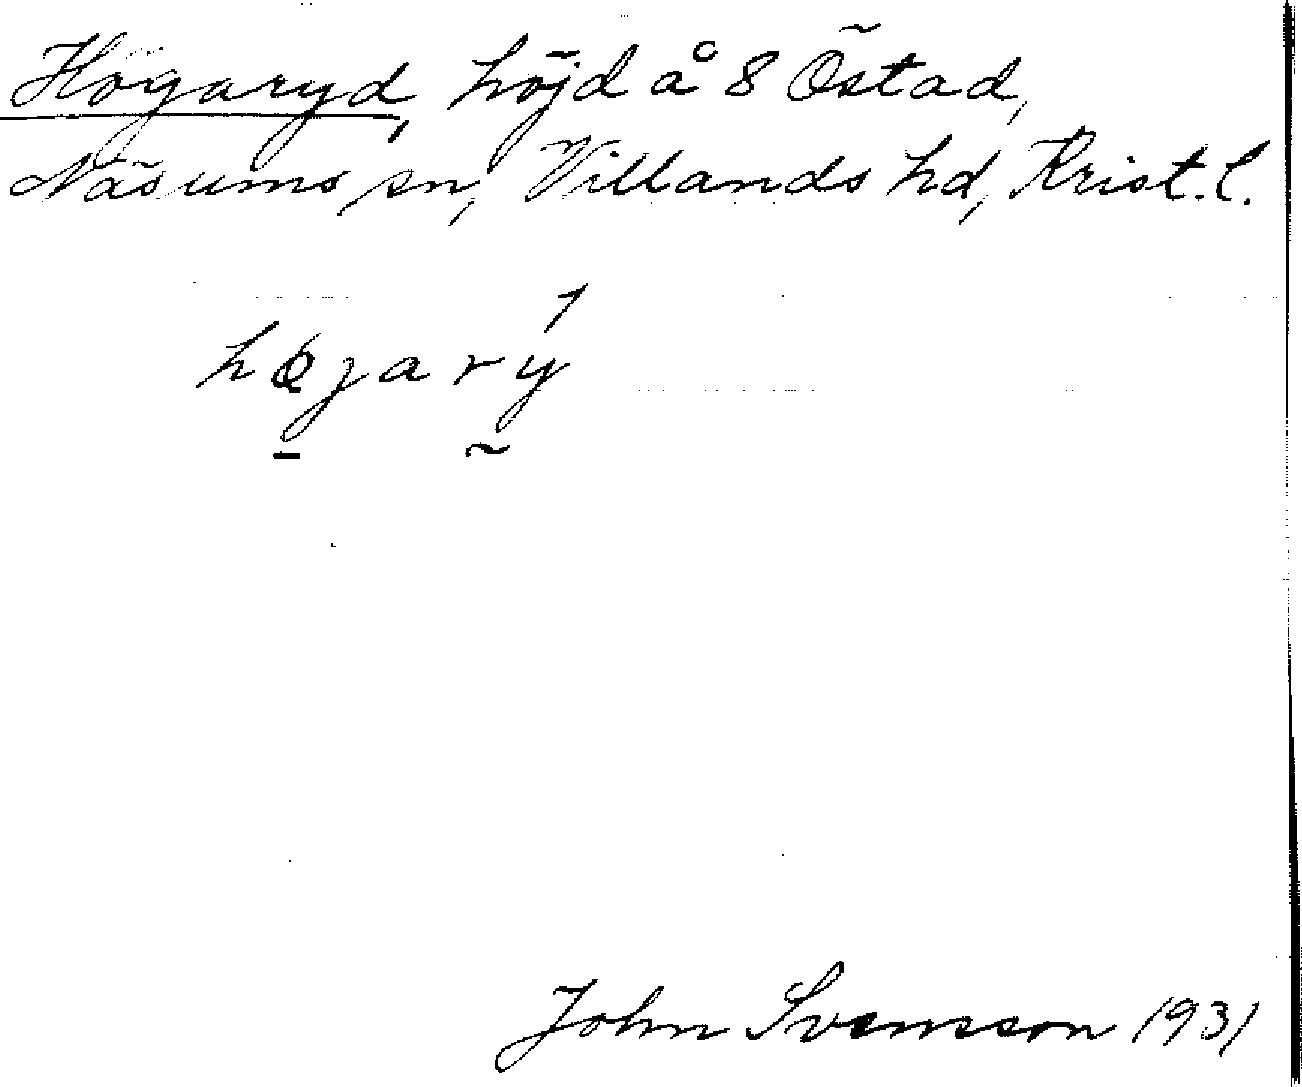 Högaryd, höjd å 8 Östad,
Näsums sn, Villands hd, Krist. l.
højarý
John Svensson 1931